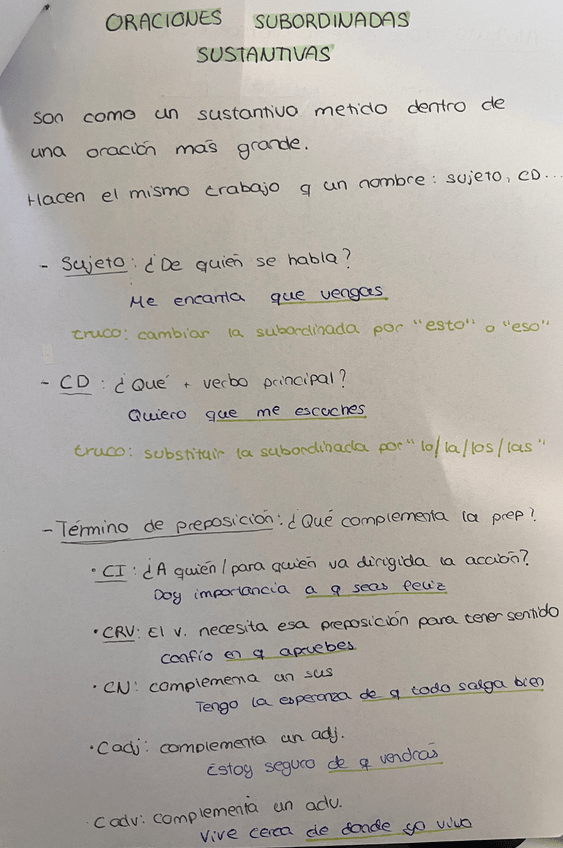 ORACIONES SUBORDINADAS
SUSTANTIVAS
Son como un sustantivo metido dentro de
una oración más grande.
Hacen el mismo trabajo q un nombre: sujeto, CD...
- Sujeto: ¿De quién se habla?
Me encanta que vengas
truco: cambiar la subordinada por "esto" o "eso"
- CD: ¿Qué + verbo principal?
Quiero que me escuches
truco: substituir la subordinada por "lo/la/los/las"
- Término de preposición: ¿Qué complementa la prep?
· CI: ¿A quién/para quién va dirigida la acción?
Doy importancia a q seas feliz
· CRV: El v. necesita esa preposición para tener sentido
confío en q apruebes
· CN: complementa un sus
Tengo la esperanza de q todo salga bien
· Cadj: complementa un adj.
Estoy seguro de q vendrás
· Cadv: complementa un adv.
Vive cerca de donde yo vivo